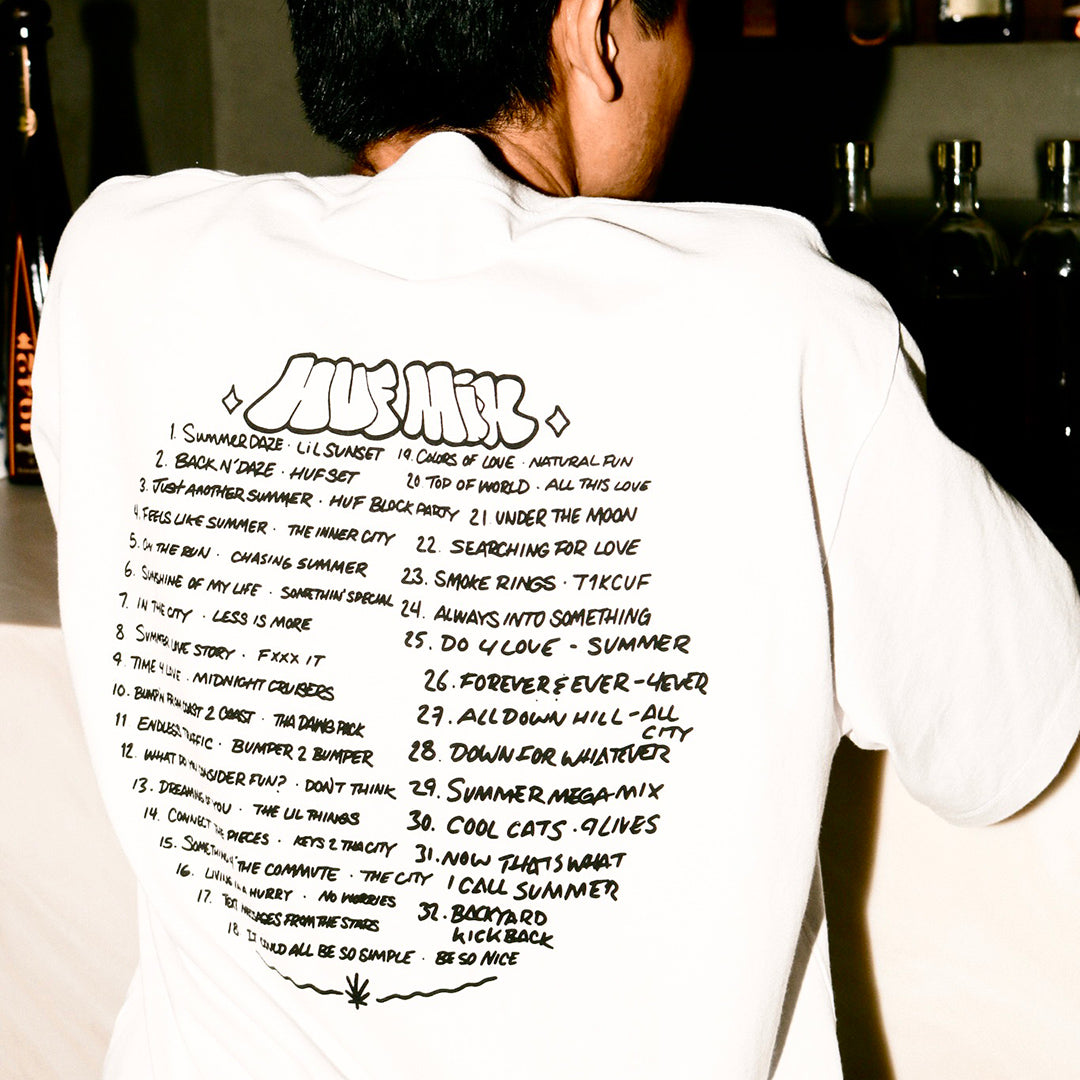 HUF MIX
1. SUMMER DAZE · LIL SUNSET
2. BACK N' DAZE · HUF SET
3. JUST ANOTHER SUMMER · HUF BLOCK PARTY
4. FEELS LIKE SUMMER · THE INNER CITY
5. ON THE RUN · CHASING SUMMER
6. SUNSHINE OF MY LIFE · SOMETHIN' SPECIAL
7. IN THE CITY · LESS IS MORE
8 SUMMER LOVE STORY · FXXX IT
9. TIME 4 LOVE · MIDNIGHT CRUISERS
10. BUMP'N FROM COAST 2 COAST · THA DAWG PACK
11 ENDLESS TRAFFIC · BUMPER 2 BUMPER
12. WHAT DO YOU CONSIDER FUN? · DON'T THINK
13. DREAMING OF YOU · THE LIL THINGS
14. CONNECT THE PIECES · KEYS 2 THA CITY
15. SOMETHING 4 THE COMMUTE · THE CITY
16. LIVING IN A HURRY · NO WORRIES
17. TEXT MESSAGES FROM THE STARS
18 IT COULD ALL BE SO SIMPLE · BE SO NICE
19. COLORS OF LOVE · NATURAL FUN
20 TOP OF WORLD · ALL THIS LOVE
21 UNDER THE MOON
22. SEARCHING FOR LOVE
23. SMOKE RINGS · T1KCUF
24. ALWAYS INTO SOMETHING
25. DO 4 LOVE - SUMMER
26. FOREVER & EVER - 4EVER
27. ALL DOWN HILL - ALL
CITY
28. DOWN FOR WHATEVER
29. SUMMER MEGA-MIX
30. COOL CATS · 9 LIVES
31. NOW THATS WHAT
I CALL SUMMER
32. BACKYARD
KICKBACK
1942